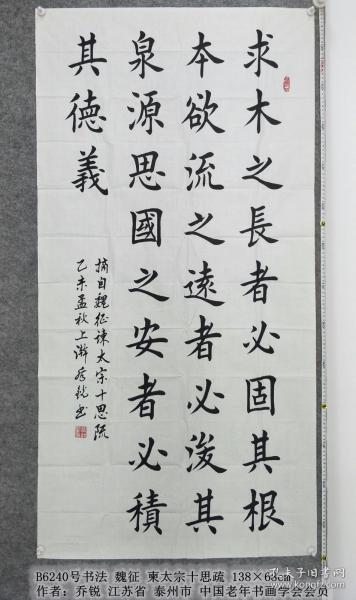 求木之長者必固其根
本欲流之遠者必浚其
泉源思國之安者必積
其德義
摘自魏征谏太宗十思疏
乙未孟秋上澣 乔锐书
B6240号书法 魏征 柬太宗十思疏 138×68cm
作者：乔锐 江苏省 泰州市 中国老年书画学会会员
孔夫子旧书网